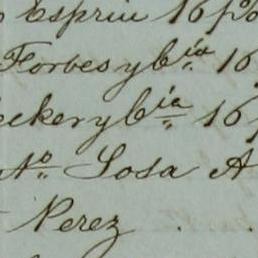 Espriu 16 p%
Forbes y Cia 16
ecker y Cia 16
Sosa A
Perez